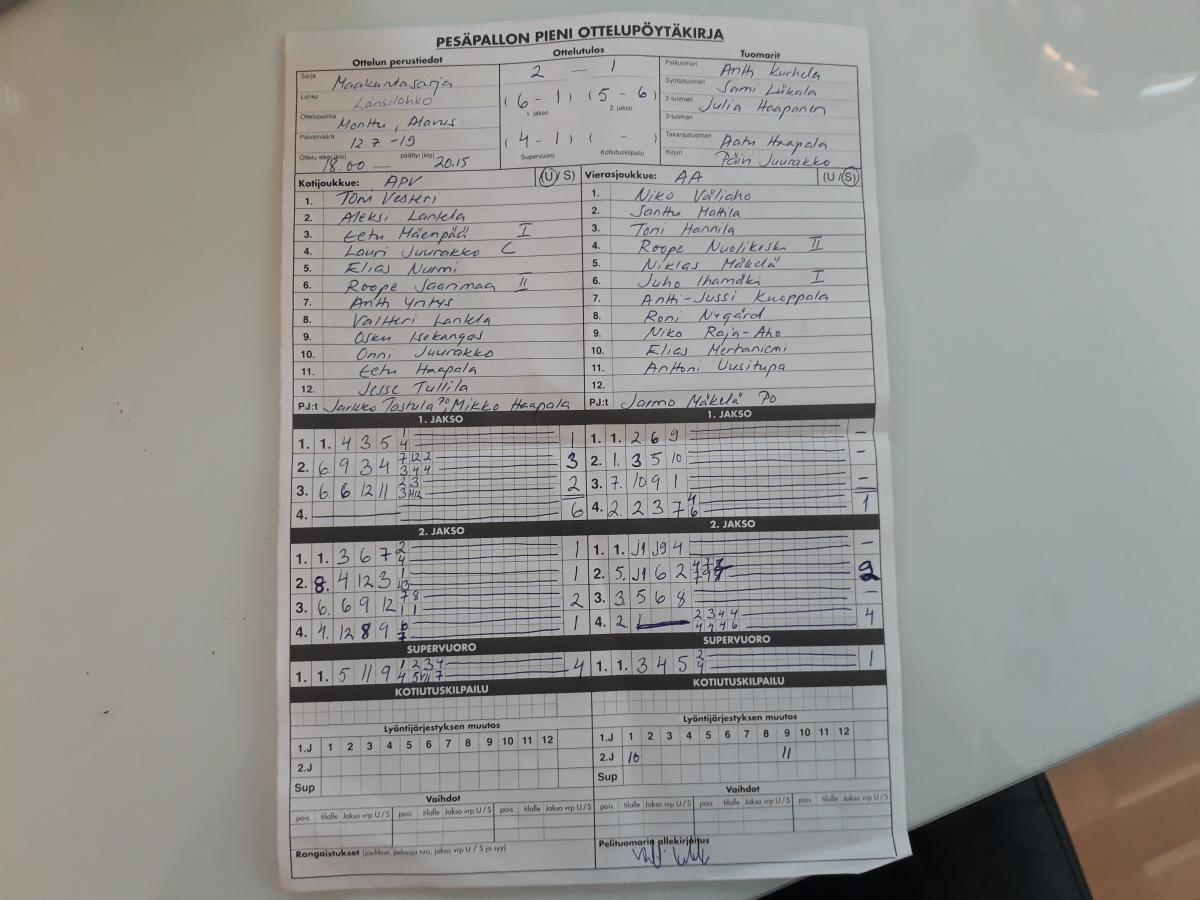 PESÄPALLON PIENI OTTELUPÖYTÄKIRJA
Ottelun perustiedot Ottelutulos Tuomarit
Sarja Maakuntasarja 2 - 1 Pelituomari Antti Kurhela
Lohko Länsilohko (6 - 1) (5 - 6) Syöttötuomari Sami Liikala
1. jakso 2. jakso 2-tuomari Julia Haaponen
Ottelupaikka Monttu, Alavus 3-tuomari
Päivämäärä 12.7 -19 (4 - 1) ( - ) Takarajatuomari Aatu Haapala
Ottelu alkoi (klo) 18.00 — päättyi (klo) 20.15 Supervuoro Kotiutuskilpailu Kirjuri Päivi Juurakko
Kotijoukkue: APV (U/S) Vierasjoukkue: AA (U/S)
1. Tom Vesteri 1. Niko Väliaho
2. Aleksi Lantela 2. Santtu Mattila
3. Eetu Mäenpää I 3. Toni Hannila
4. Lauri Juurakko C 4. Roope Nuolikoski II
5. Elias Nurmi 5. Niklas Mäkelä
6. Roope Saarimaa II 6. Juho Ihamäki I
7. Antti Yritys 7. Antti-Jussi Kuoppala
8. Valtteri Lantela 8. Roni Nygård
9. Osku Isokangas 9. Niko Raja-Aho
10. Onni Juurakko 10. Elias Mertaniemi
11. Eetu Haapala 11. Anttoni Uusitupa
12. Jesse Tullila 12.
PJ:t Jarkko Tostula PO, Mikko Haapala PJ:t Jarmo Mäkelä PO
1. JAKSO 1. JAKSO
1. 1. 4 3 5 1 4 1 1. 1. 2 6 9 –
2. 6. 9 3 4 7 12 2 3 4 4 3 2. 1. 3 5 10 –
3. 6. 6 12 11 2 3 3 2 3. 7. 10 9 1 –
4. 6 4. 2. 2 3 7 4 6 1
2. JAKSO 2. JAKSO
1. 1. 3 6 7 2 4 1 1. 1. J1 J9 4 –
2. 8. 4 12 3 1 1 2. 5. J1 6 2 2
3. 6. 6 9 12 7 8 1 1 2 3. 3. 5 6 8 –
4. 4. 12 8 9 6 7 1 4. 2 1 2 3 4 4 4 4 4 6 4
SUPERVUORO SUPERVUORO
1. 1. 5 11 9 1 2 3 4 4 1. 1. 3 4 5 2 4 1
KOTIUTUSKILPAILU KOTIUTUSKILPAILU
Lyöntijärjestyksen muutos Lyöntijärjestyksen muutos
1.J 1 2 3 4 5 6 7 8 9 10 11 12 1.J 1 2 3 4 5 6 7 8 9 10 11 12
2.J 2.J 10 11
Sup Sup
Vaihdot Vaihdot
pois tilalle Jakso vrp U/S pois tilalle Jakso vrp U/S pois tilalle Jakso vrp U/S pois tilalle Jakso vrp U/S pois tilalle Jakso vrp U/S pois tilalle Jakso vrp U/S
Rangaistukset (joukkue, pelaaja nro, jakso vrp U / S ja syy) Pelituomarin allekirjoitus